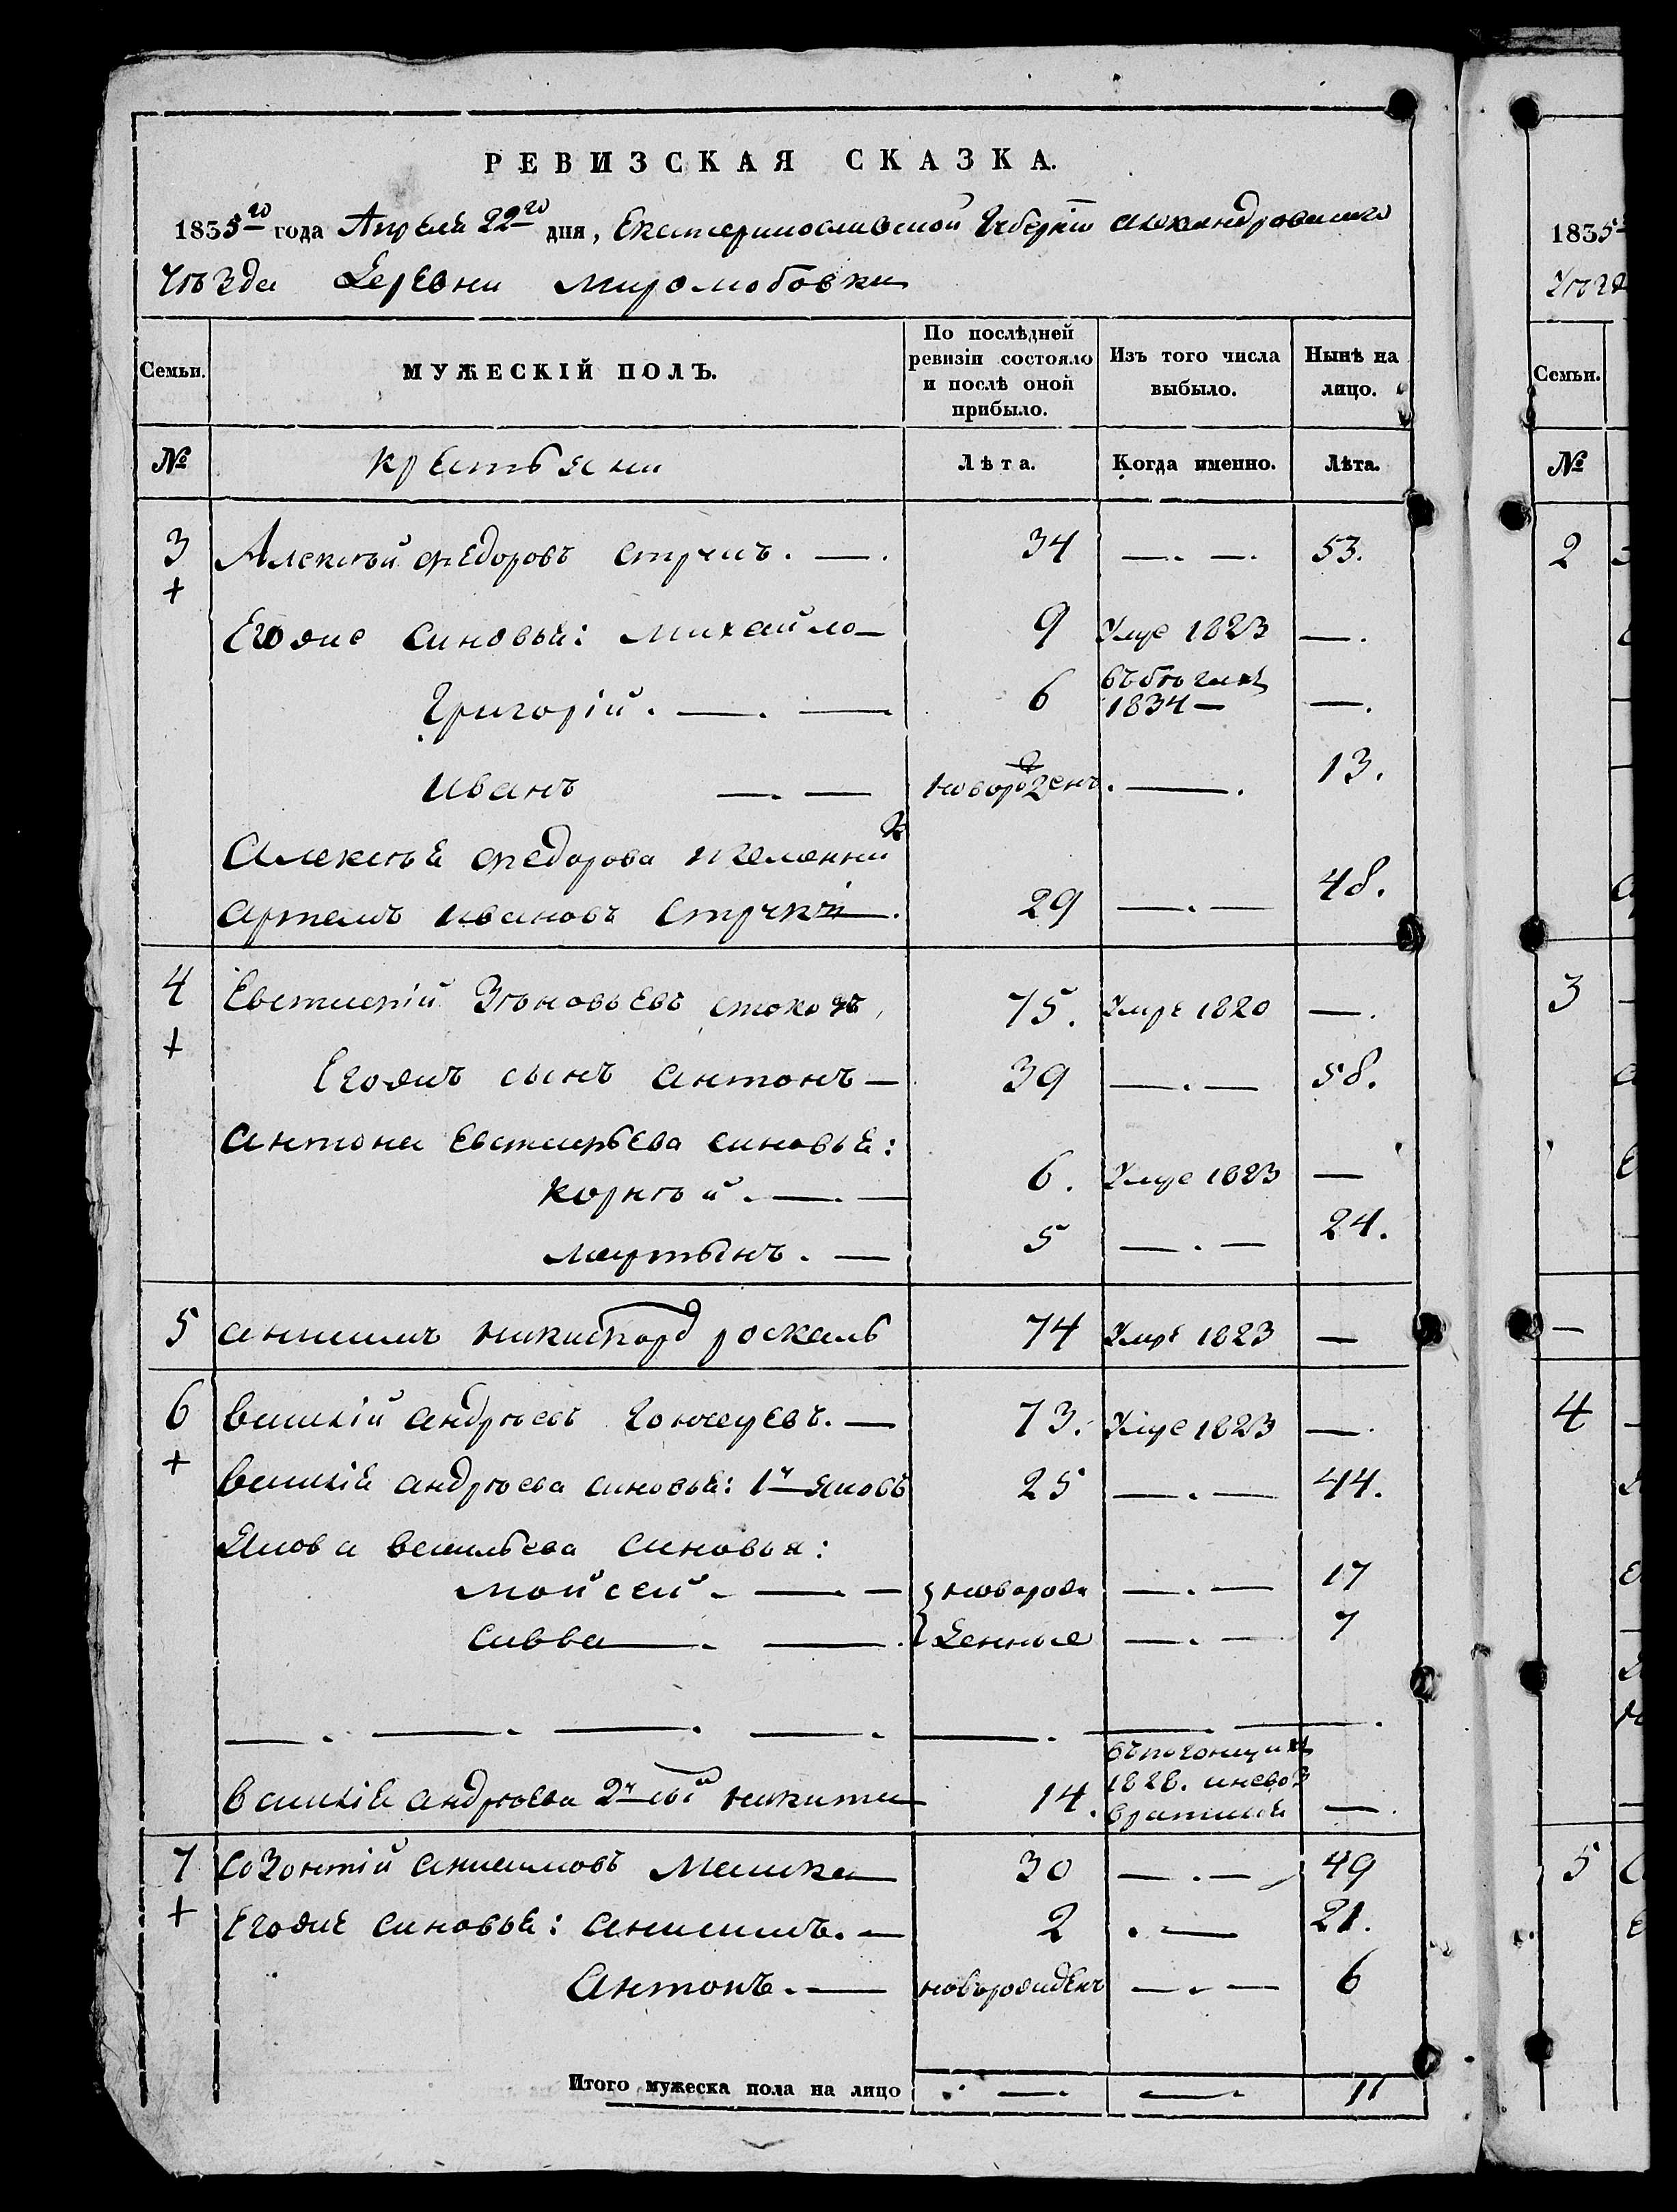 РЕВИЗСКАЯ СКАЗКА.
1835го года Апреля 22го дня, Екатеринославской Губерніи Александровского
Уѣзда Деревни Миролюбовки
Семьи. МУЖЕСКІЙ ПОЛЪ. По послѣдней ревизіи состояло и послѣ оной прибыло. Изъ того числа выбыло. Нынѣ на лицо.
№ крестьяни Лѣта. Когда именно. Лѣта.
3 Алексѣй Федоровъ 34 53.
Егоже синовья: Михайло 9 Умре 1823
Григорій. 6 въ бѣгахъ 1834
Иванъ новорожденъ. 13.
Алексѣя Федорова племенник
Артемъ Ивановъ 29 48.
4 Евстафій Зѣновьевъ 75. Умре 1820
Егожъ сынъ Антонъ 39 58.
Антона Евстафьева синовья:
Корнѣй. 6. Умре 1823
Мартынъ. 5 24.
5 Анисимъ Никифоров 74 Умре 1823
6 Василій Андрѣевъ Гончаревъ. 73. Умре 1823
Василія Андрѣева синовья: 1й Яковъ 25 44.
Якова Васильева синовья:
Мойсей. новорож 17
Савва денные 7
Василія Андрѣева 2й сын Никита 14. 1828. и невозвратился
7 Созонтій Анисимовъ Машка 30 49
Егоже синовья: Анисимъ. 2 21.
Антонъ. новорожденъ 6
Итого мужеска пола на лицо 11
1835
Уѣзд
Семьи.
№
2
3
4
5